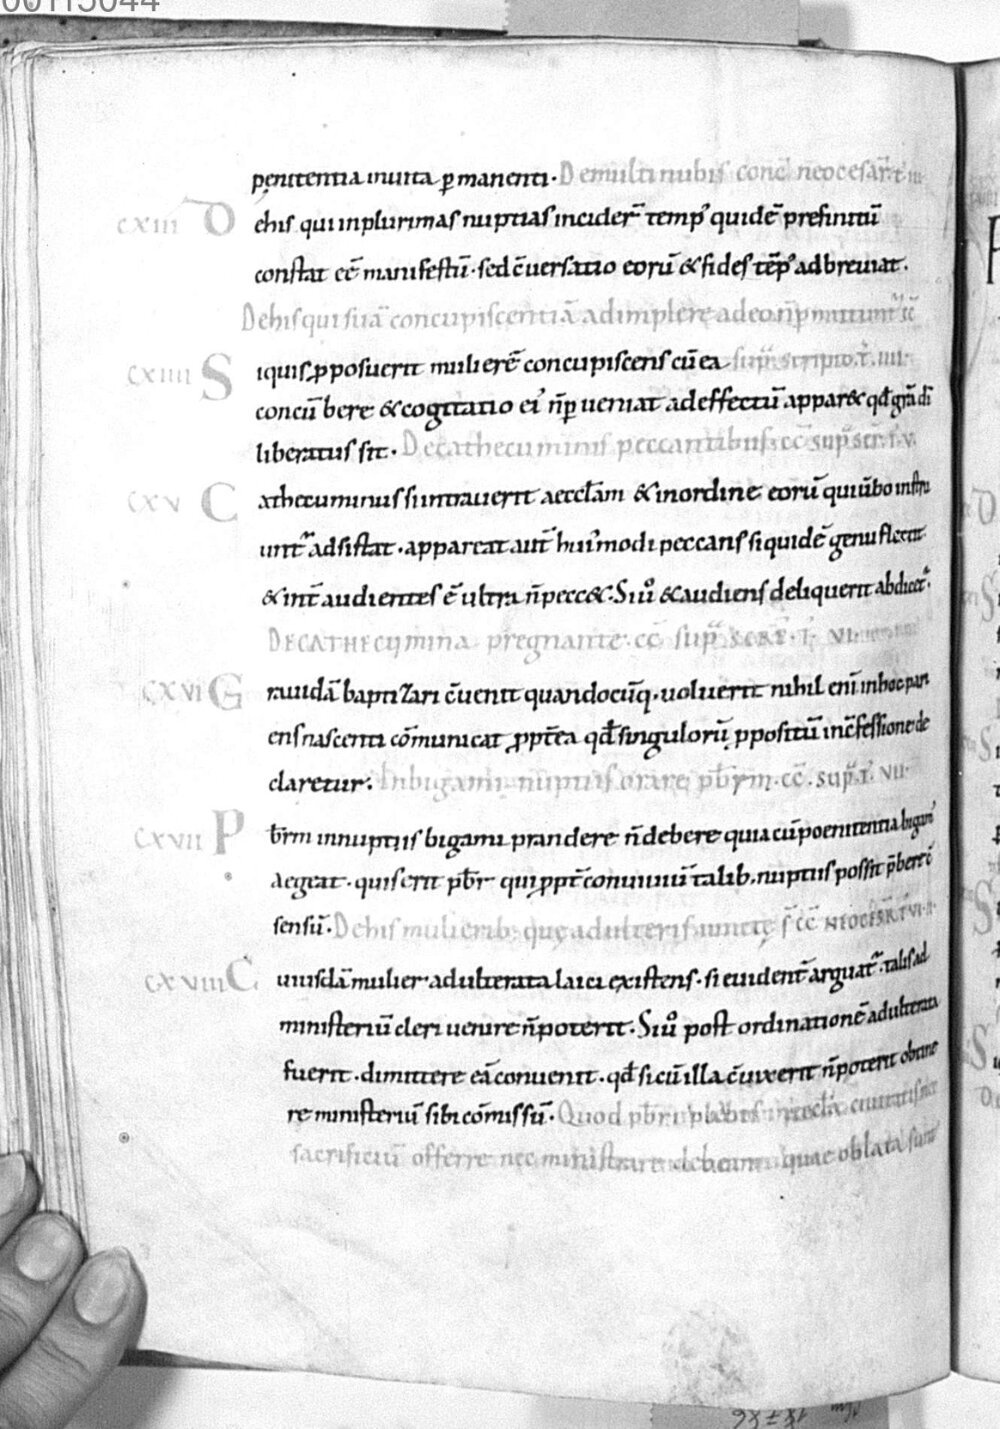 pęnitentia inuita ꝑmanenti · Demulti nubis conc̄ neocesar̄ t̄ iii
CXIII D ehis qui inplurimas nuptias incider̄ temp᾽ quidē prefinitū
constat eē manifestū · sed c̄uersatio eorū & fides tēp᾽ adbreuiat ·
Dehis qui suā concupiscentiā adimplere adeo n̄ p̱mittunt᷑
CXIIII S iquis ꝓposuerit mulierē concupiscens cū ea sup̄ scripto · t̄ · iiii ·
concūbere & cogitatio ei᾽ n̄ ꝑueniat adeffectū appar& qd̄ grā dī
liberatus sit · Decathecuminis peccantibus · cc̄ sup̄ scr̄ · t̄ · v ·
CXV C athecuminus si intrauerit aecclām & inordine eorū qui ūbo instru
unt᷑ adsistat · appareat aut̄ hui᾽modi peccans si quidē genu flectit
& int̄ audientes ē ultra n̄ pecc& · Siu̇ & audiens deliquerit abdicet᷑ ·
DECATHECUmina pregnante · cc̄ sup̄ SCRI · T̄ · VI ·
CXVI G rauidā baptizari c̄uenit quandocūq · uoluerit nihil enī inhoc pari
ens nascenti cōmunicat ꝓpt̄ea qd̄ singulorū ꝓpositū inc̄fessione de
claretur · In bigami nuptiis orare pb̄rm · cc̄ · sup̄ · t̄ · VII ·
CXVII P b̄rm innuptiis bigami prandere n̄ debere quia cū poenitentia bigam᾽
aegeat · quis erit pb̄r qui ꝓpt̄ conuiuiū talib, nuptiis possit p̄bere c̄
sensū · Dehis mulierib; quę adulteris iunctę s̄ cc̄ NEOCESR̄ T̄ VIII
CXVIII C uiusdā mulier adulterata laici existens · si euident̄ arguat᷑ · talis ad
ministeriū cleri uenire n̄ poterit · Siu̇ post ordinationē adulterata
fuerit · dimittere eā conuenit · qd̄ si cū illa c̄uixerit n̄ poterit obtine
re ministeriū sibi cōmissū · Quod pb̄ri plebis
sacrificiū offerre nec ministrare debeant quae oblata sunt